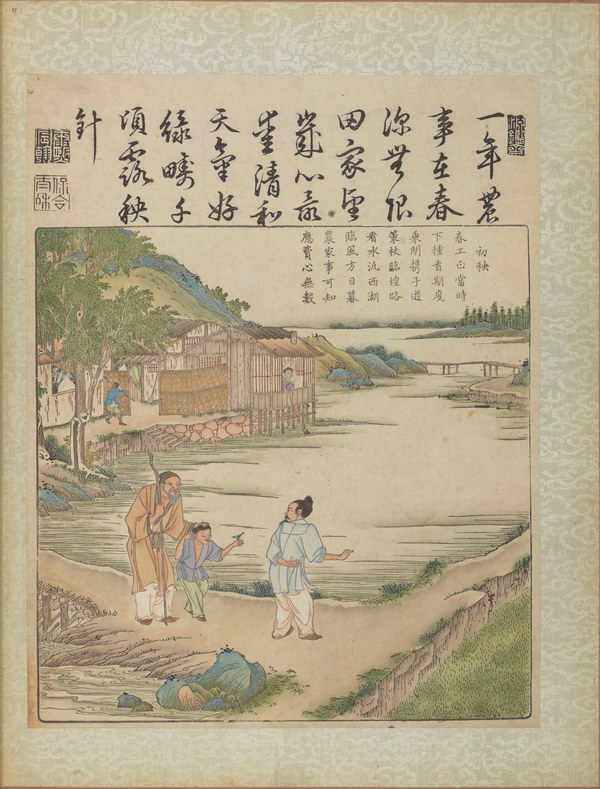 一年農
事在春
深無限
田家望
歲心最
愛清和
天氣好
綠疇千
頃露秧
針
保合
太和
初秧
春工正當時
下種看期度
乘閒携子遊
策杖臨堤路
看水汎西湖
臨風方日暮
農家事可知
應費心無數